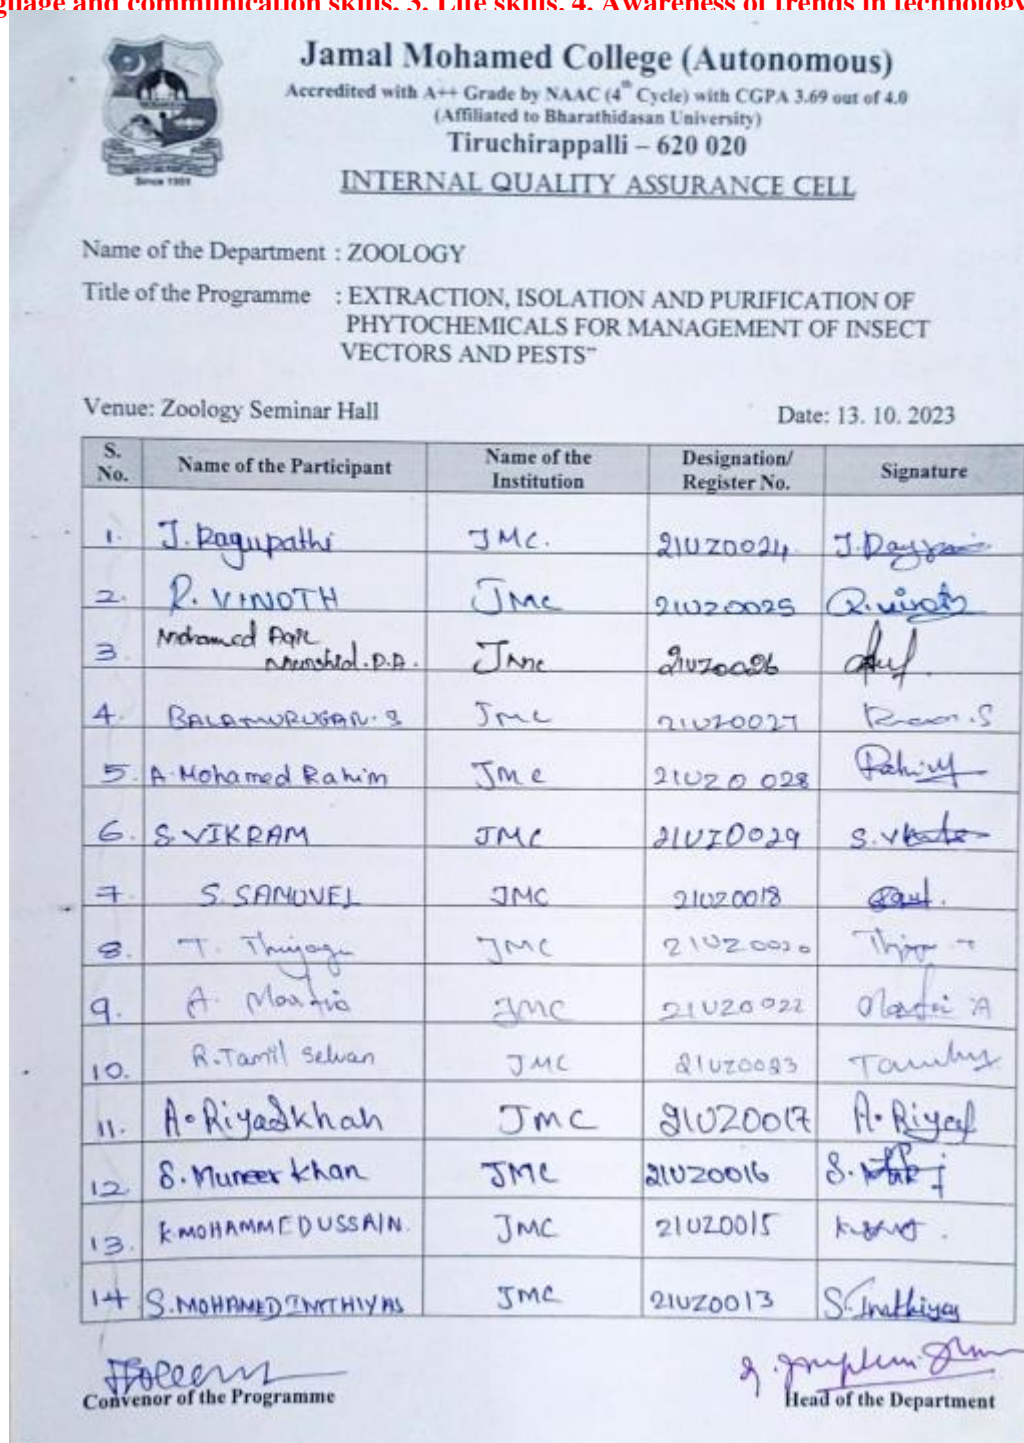 guage and communication skills. 3. Life skills. 4. Awareness of trends in technology
Jamal Mohamed College (Autonomous)
Accredited with A++ Grade by NAAC (4th Cycle) with CGPA 3.69 out of 4.0
(Affiliated to Bharathidasan University)
Tiruchirappalli – 620 020
INTERNAL QUALITY ASSURANCE CELL
Since 1951
Name of the Department : ZOOLOGY
Title of the Programme : EXTRACTION, ISOLATION AND PURIFICATION OF
PHYTOCHEMICALS FOR MANAGEMENT OF INSECT
VECTORS AND PESTS"
Venue: Zoology Seminar Hall Date: 13. 10. 2023
S. No. Name of the Participant Name of the Institution Designation/ Register No. Signature
1. J. Ragupathi JMC. 21UZ0024
2. R. VINOTH JMC 21UZ0025 R. vinoth
3 Mohamed Aqil Murshid. P.A. JMC 21UZ0026
4. BALAMURUGAN. S JMC 21UZ0027
5. A. Mohamed Rahim JMC 21UZ0028
6. S. VIKRAM JMC 21UZ0029
7. S. SAMUVEL JMC 21UZ0018
8. T. Thiyagu JMC 21UZ0020
9. A. JMC 21UZ0022
10. R. Tamil Selvan JMC 21UZ0023
11. A. Riyadkhan JMC 21UZ0017 A. Riyad
12 S. Muneer Khan JMC 21UZ0016
13. K. MOHAMMED USSAIN. JMC 21UZ0015
14 S. MOHAMED INATHIYAS JMC 21UZ0013 S. Inathiyas
Convenor of the Programme Head of the Department